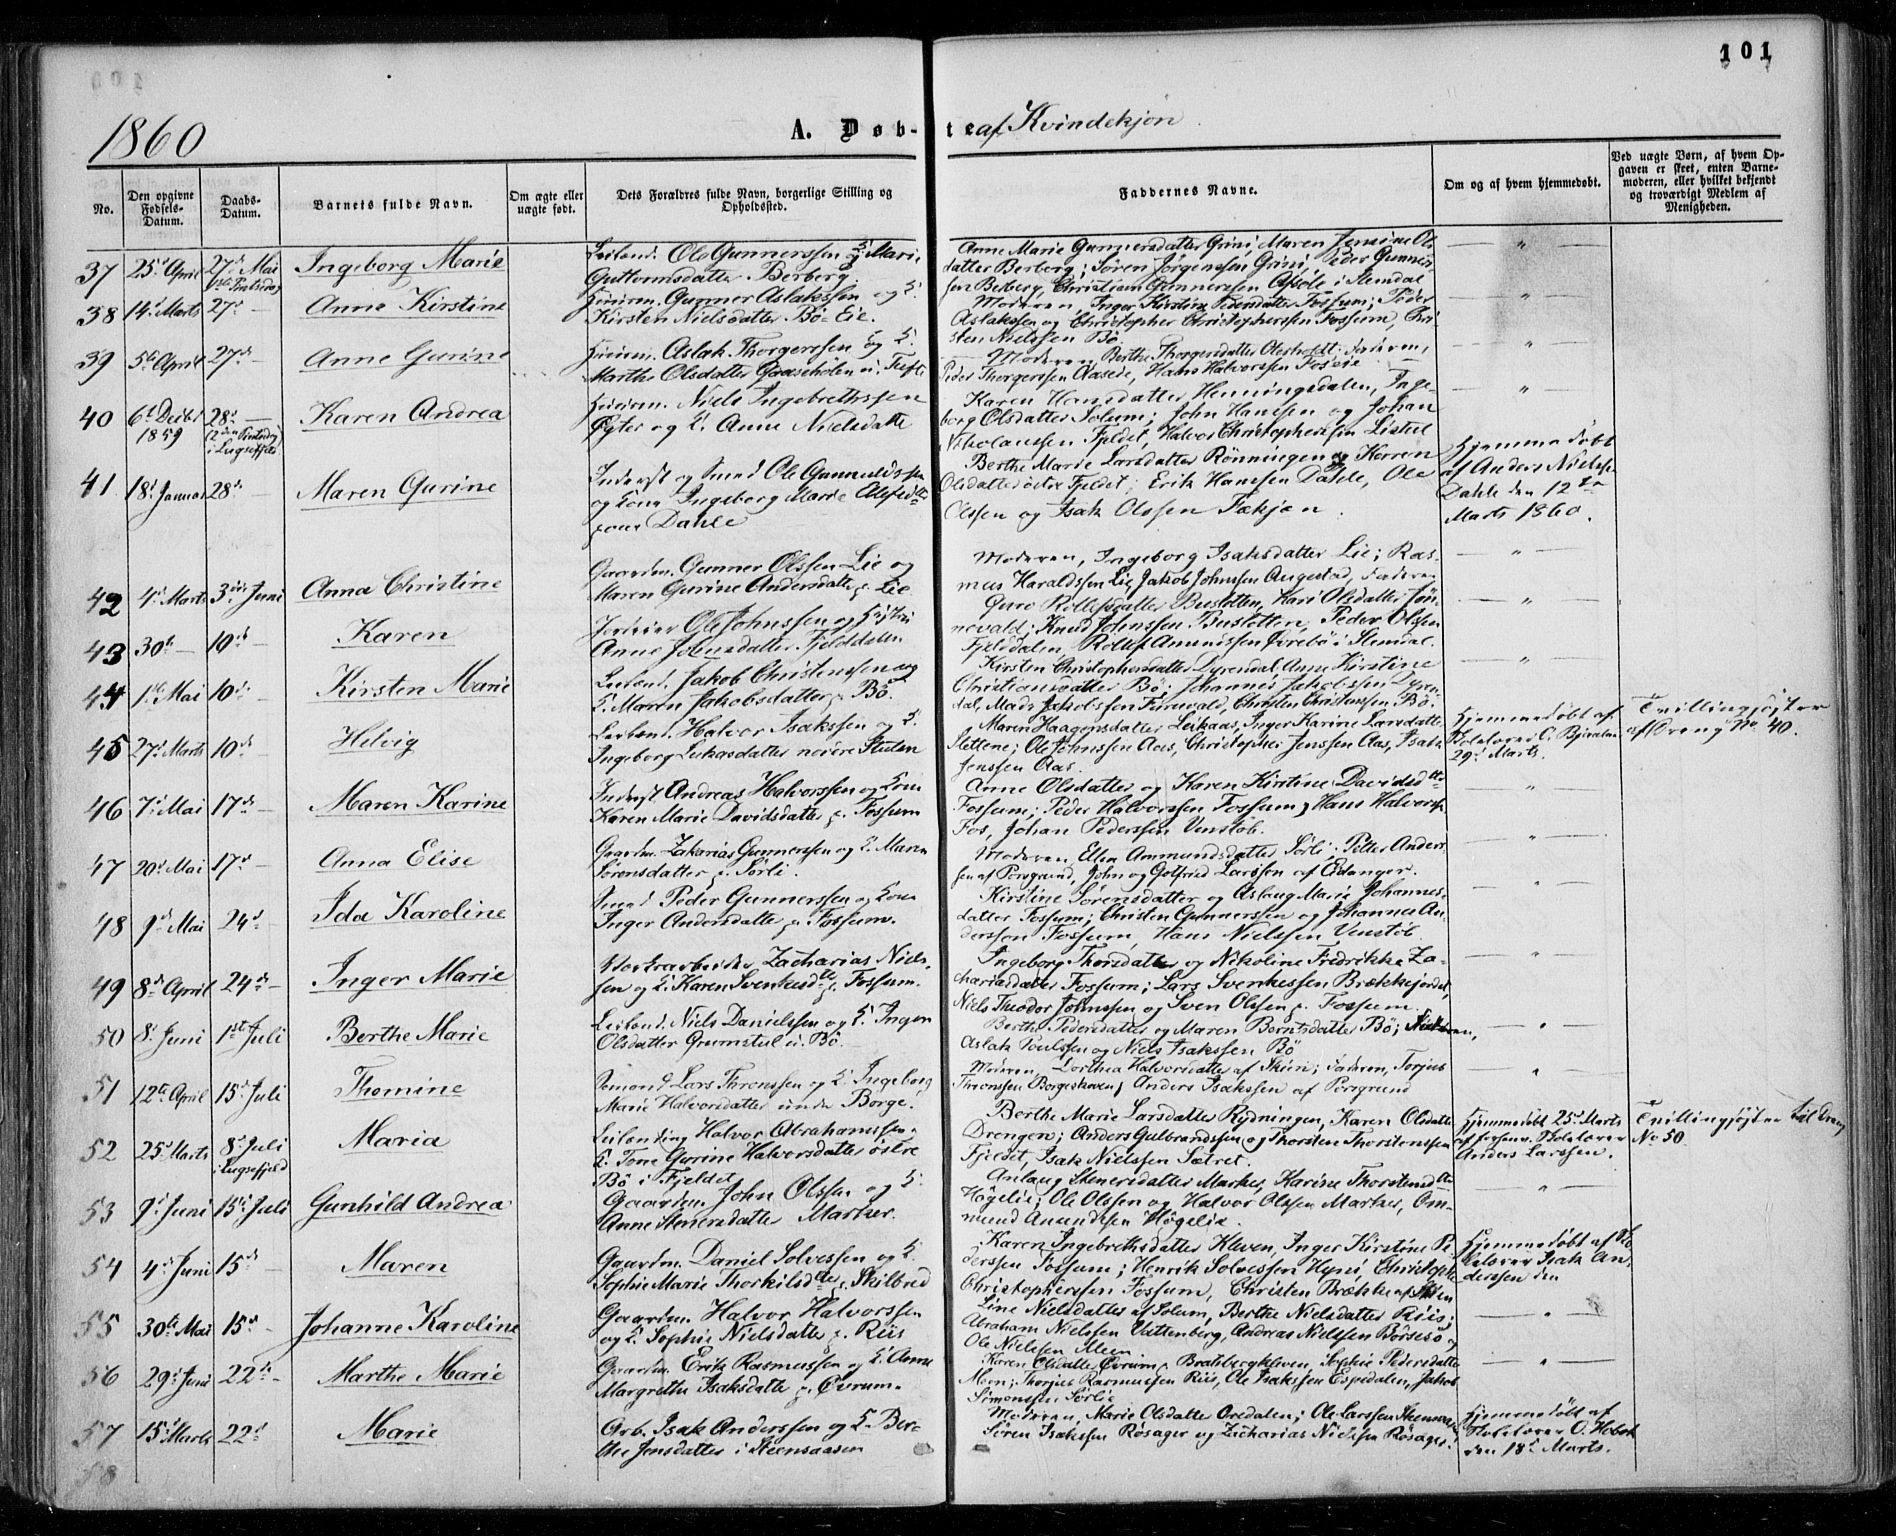 101
1860
A. Døbte af Kvindekjøn.
No.
Den opgivne Fødsels-Datum.
Daabs-Datum.
Barnets fulde Navn.
Om ægte eller uægte født.
Dets Forældres fulde Navn, borgerlige Stilling og Opholdssted.
Faddernes Navne.
Om og af hvem hjemmedøbt.
Ved uægte Børn, af hvem Opgaven er skeet, enten Barnemoderen, eller hvilket bekjendt og troværdigt Medlem af Menigheden.
37 25d April 27de Mai Ingeborg Marie
Leilend. Ole Gunnerssen & Marie
Guttormsdatter Berberg.
Anne Marie Gunnersdatter Grini Maren Jensine Ols-
datter Berberg; Søren Jørgenssen Grini, Peder Gunners-
sen Berberg, Christian Gunnerssen Ofsøle i Slemdal
38 14d Marts 27d — Anne Kirstine
Gunner Aslakssen og K.
Kirsten Nielsdatter Bö-Eie.
Moderen, Inger Kirstine Pedersdatter Fossum; Peder
Aslakssen og Christopher Christopherssen Fossum, Chri-
sten Nielssen Bö
39 5te April 27d — Anne Gurine
Aslak Thorgerssen og K.
Marthe Olsdatter Gaaseholen u. Tufte
Moderen Berthe Thorgersdatter Olesholt; Faderen,
Peder Thorgerssen Aasede, Hans Halvorssen Foseie
40 6d Decbr 1859 28d — Karen Andrea
Niels Ingebrethssen
Öyter og K. Anne Nielsdatte
Karen Hansdatter Henningsdalen, Inge-
borg Olsdatter Solum; John Hanssen og Johan
Nikolaussen Fjeldet, Halvor Christopherssen Listul
41 18d Januar 28d — Maren Gurine
Inderst og Smed Ole Gunnuldssen
og Kone Ingeborg Marie
paa Dahle
Berthe Marie Larsdatter Rönningen og Karen
Olsdatter östre Fjeldet; Erik Hanssen Dahle, Ole
Olssen og Isak Olssen Tækjen.
Hjemmedöbt
af Anders Nielss.
Dahle den 12te
Marts 1860.
42 4d Marts 3die Juni Anna Christine
Gaardm. Gunner Olssen Lie og
Maren Gurine Andersdatter p. Lie.
Moderen, Ingeborg Isaksdatter Lie; Ras-
mus Haraldssen Lie, Jakob Johnssen Augestad, Faderen
43 30te — 10de — Karen
Ole Johnssen og Hustru
Anne Johnsdatter Fjelddalen
Guro Rollefsdatter Buslotten, Kari Olsdatter Jön-
nevald; Knud Johnssen Buslotten, Peder Olssen
Fjelddalen, Rollef Amundssen Övrebö i Slemdal.
44 1ste Mai 10de — Kirsten Marie
Leilend. Jakob Christenssen og
K. Maren Jakobsdatter p. Bö.
Kirsten Christophersdatter Dyrendal, Anne Kirstine
Christiansdatter Bö; Johannes Jakobssen Dyren-
dal, Mads Jakobssen Furuvald, Christen Christenssen Bö.
45 27d Marts 10de — Helvig
Leilend. Halvor Isakssen og K.
Ingeborg Lukasdatter nordre Sluten
Maren Haagensdatter Leikaas, Inger Karine Larsdatter
Slettene; Ole Johnssen Aas, Christopher Jenssen Aas, Isak
Jenssen Aas.
Hjemmedöbt af
Skolelærer C. Bjerndalen
29d Marts.
Tvillingsöster
af Dreng No 40.
46 7d Mai 17de — Maren Karine
Inderst Andreas Halvorssen og Kone
Karen Marie Davidsdatter p. Fossum
Anne Olsdatter og Karen Kirstine Davidsdtr
Fossum; Peder Halvorssen Fossum, Hans Halvorss.
Fos, Johan Pederssen Venstöb.
47 20d Mai 17d — Anna Elise
Gaardm. Zakarias Gunnerssen og K. Maren
Sörensdatter p. Sörli.
Moderen, Ellen Ammundsdatter Sörli; Petter Anders-
sen af Porsgrund, John og Gotfried Larssen af Eidanger.
48 9d Mai 24d — Ida Karoline
Smed Peder Gunnerssen og Kone
Inger Andersdatter p. Fossum.
Kirstine Sörensdatter og Aslaug Marie Johannes-
datter Fossum; Christen Gunnerssen og Johannes An-
derssen Fossum, Hans Nielssen Venstöb
49 8d April 24de — Inger Marie
Værksarbeider Zacharias Niels-
sen og K. Karen Svenkesdtr p. Fossum.
Ingeborg Thorsdatter og Nikoline Fredrikke Za-
chariasdatter Fossum; Lars Svenkessen Brækkejordet,
Niels Theodor Johnssen og Sven Olssen p. Fossum.
50 8d Juni 1ste Juli Berthe Marie
Leilend. Niels Danielssen og K. Inger
Olsdatter Grumstul u. Bö.
Berthe Pedersdatter og Maren Berntsdatter Bö;
Aslak Poulssen og Niels Isakssen Bö
51 12te April 15d Juli Thomine
Sömand Lars Thronssen og K. Ingeborg
Marie Halvorsdatter under Borge.
Moderen, Dorthea Halvorsdatter af Skien; Faderen, Torjus
Thronssen Borgeskoven, Anders Isakssen af Porsgrund
52 25d Marts 8d Juli Maria
Leilending Halvor Abrahamssen
K. Tone Gurine Halvorsdatter östre
Bö i Fjeldet
Berthe Marie Larsdatter Rydningen, Karen Olsdatter
Drengen; Anders Gulbrandssen og Thorsten Thorstenssen
Fjeldet, Isak Nielssen Sætret.
Hjemmedöbt 25d Marts
af forhenv. Skolelærer
Anders Larssen.
Tvillingsöster til Dreng
No 50.
53 9d Juni 15de Juli Gunhild Andrea
Gaardm. John Olssen og K.
Anne Stenersdatter Marker.
Anlaug Stenersdatter Marker, Karine Thorstensdtr
Högelie; Ole Olssen og Halvor Olssen Marker, Om-
mund Amundsen Högelie.
54 4d Juni 15de — Maren
Gaardm. Daniel Solvessen og K.
Sophie Marie Thorkilsdtr p. Skilbred
Karen Ingebrethsdatter Kleven, Inger Kirstine Pe-
derssen Fossum; Henrik Solvessen Hyni, Christopher
Christopherssen Fossum, Christen Brække af Skien
Hjemmedöbt af Sko-
lelærer Isak An-
derssen den
55 30te Mai 15d — Johanne Karoline
Gaardm. Halvor Halvorssen
og K. Sophie Nielsdatter p. Riis
Line Nielsdatter af Solum, Berthe Nielsdatter Riis;
Abraham Nielssen Vattenberg, Andreas Nielssen Börsesö og
Ole Nielssen Meen
56 29d Juni 22de — Marthe Marie
Gaardm. Erik Rasmussen og K. Anne
Margrethe Isaksdatter p. Övrum.
Karen Olsdatter Övrum, Bratsbergkleven, Sophie Pedersdatter
Meen; Thorjus Rasmussen Riis, Ole Isakssen Espedalen, Jakob
Simonssen Sörlie
57 15d Marts 22d — Marie
Arb. Isak Anderssen og K. Ber-
the Jensdatter i Steensaasen
Moderen, Marie Olsdatter Oredalen; Ole Larssen
Sören Isakssen Røsager og Zacharias Nielssen Røsager.
Hjemmedöbt af
Skolelærer O. Hobæk
den 18d Marts.
58